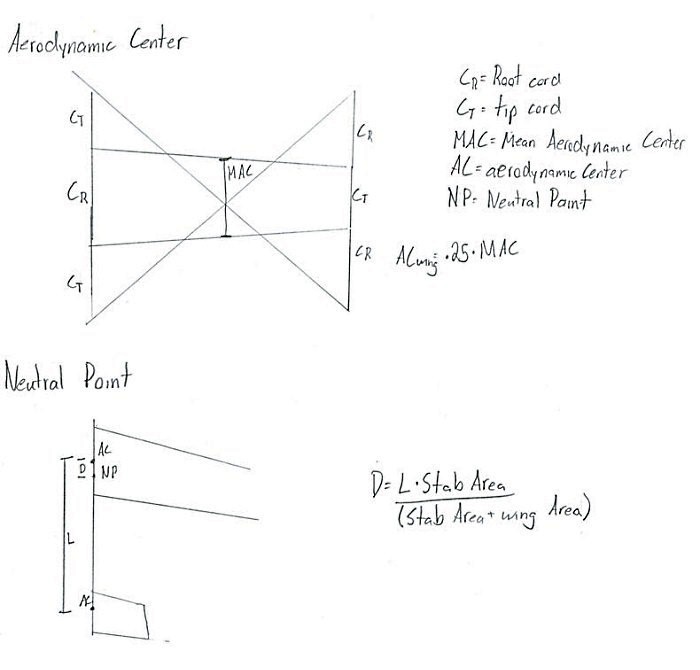 Aerodynamic Center
CT
CR
CT
MAC
CR
CT
CR
CR= Root cord
CT= tip cord
MAC= Mean Aerodynamic Center
AC= aerodynamic Center
NP= Neutral Point
ACwing= .25·MAC
Neutral Point
AC
D
NP
L
AC
D= L·Stab Area
(Stab Area+ wing Area)